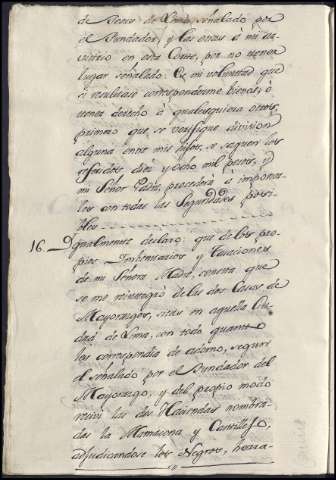 de Dentro de Lima, señalado por
el Fundador, y las otras à mi ar-
vitrio en esta Corte, por no tener
lugar señalado: Es mi voluntad que
si resultase corresponderme bienes, ò
tener derecho à qualesquiera otros,
primero que se verifique division
alguna entre mis hijos, se saquen los
referidos diez y ocho mil pesos, y
mi Señor Padre, procederà à imponer-
los con todas las seguridades posi-
bles
16. Igualmente declaro que de los pro-
pios Inbentarios y Tasaciones
de mi Señora Madre, consta que
se me reintegrò de las dos Casas de
Mayorazgo, sitas en aquella Ciu-
dad de Lima, con todo quanto
les correspondia de adorno, segun
el señalado por el Fundador del
Mayorazgo, y del propio modo
recivi las dos Haciendas nombra-
das la Mamacona y Casillejo,
adjudicandose los Negros, herra-